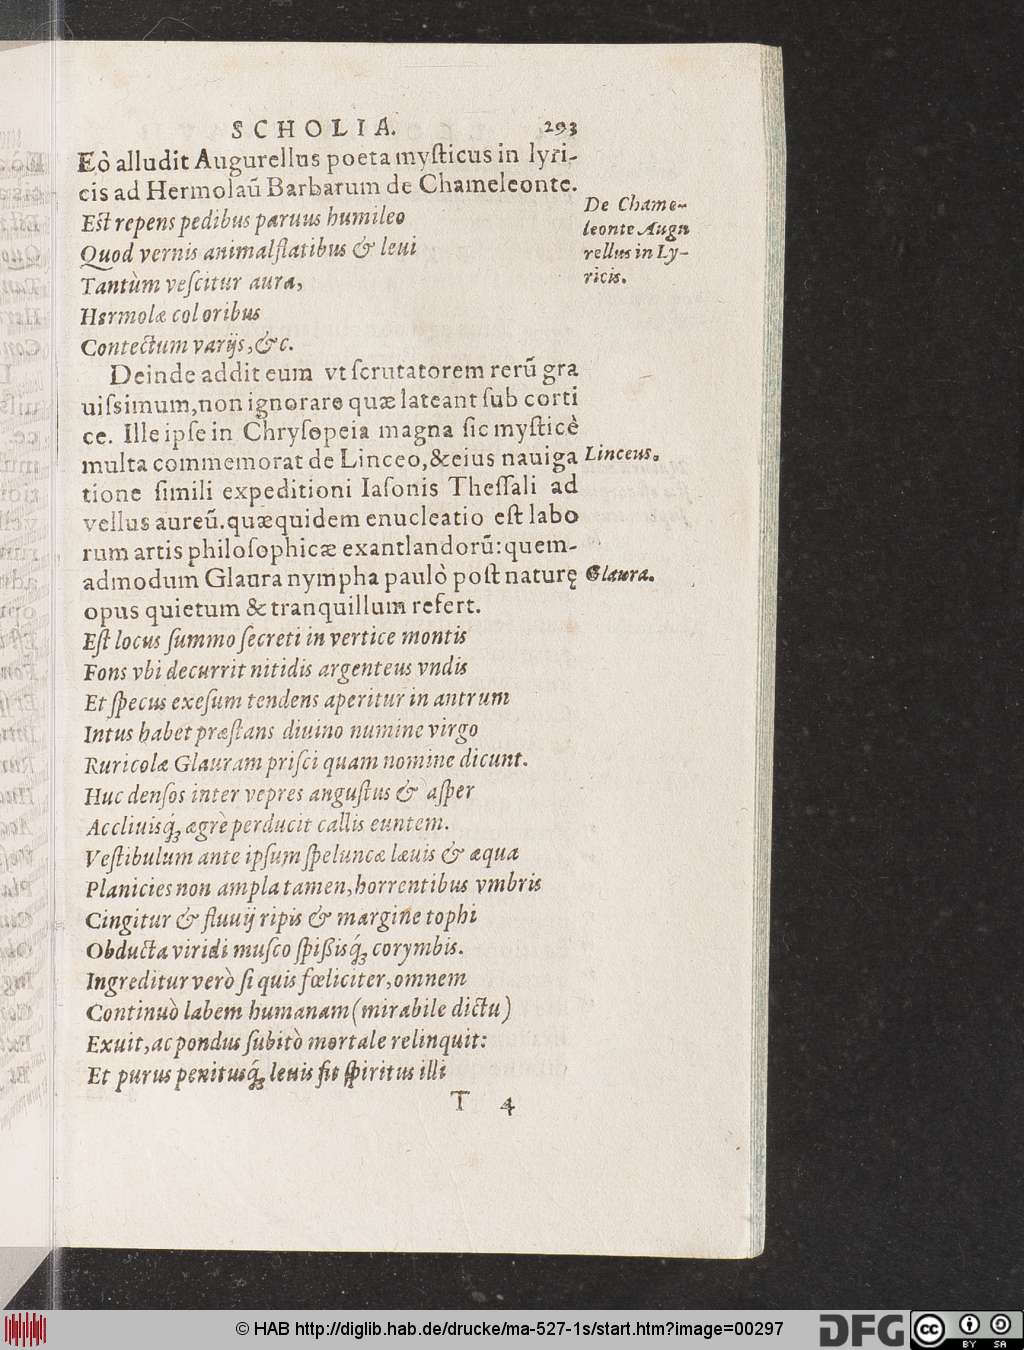 SCHOLIA. 293
Eò alludit Augurellus poeta mysticus in lyri-
cis ad Hermolaũ Barbarum de Chameleonte.
Est repens pedibus paruus humileo
Quod vernis animal flatibus & leui
Tantùm vescitur aura,
Hermolæ coloribus
Contectum varijs, &c.
De Chame-
leonte Augu
rellus in Ly-
ricis.
Deinde addit eum vt scrutatorem rerũ gra
uissimum, non ignorare quæ lateant sub corti
ce. Ille ipse in Chrysopeia magna sic mysticè
multa commemorat de Linceo, & eius nauiga
Linceus.
tione simili expeditioni Iasonis Thessali ad
vellus aureũ. quæ quidem enucleatio est labo
rum artis philosophicæ exantlandorũ: quem-
admodum Glaura nympha paulò post naturę
Glaura.
opus quietum & tranquillum refert.
Est locus summo secreti in vertice montis
Fons vbi decurrit nitidis argenteus vndis
Et specus exesum tendens aperitur in antrum
Intus habet præstans diuino numine virgo
Ruricolæ Glauram prisci quam nomine dicunt.
Huc densos inter vepres angustus & asper
Accliuisq́; ægrè perducit callis euntem.
Vestibulum ante ipsum speluncæ læuis & æqua
Planicies non ampla tamen, horrentibus vmbris
Cingitur & fluuij ripis & margine tophi
Obducta viridi musco spißisq́; corymbis.
Ingreditur verò si quis fœliciter, omnem
Continuò labem humanam (mirabile dictu)
Exuit, ac pondus subitò mortale relinquit:
Et purus penitusq́; leuis fit spiritus illi
T 4
© HAB http://diglib.hab.de/drucke/ma-527-1s/start.htm?image=00297
DFG
cc
BY SA